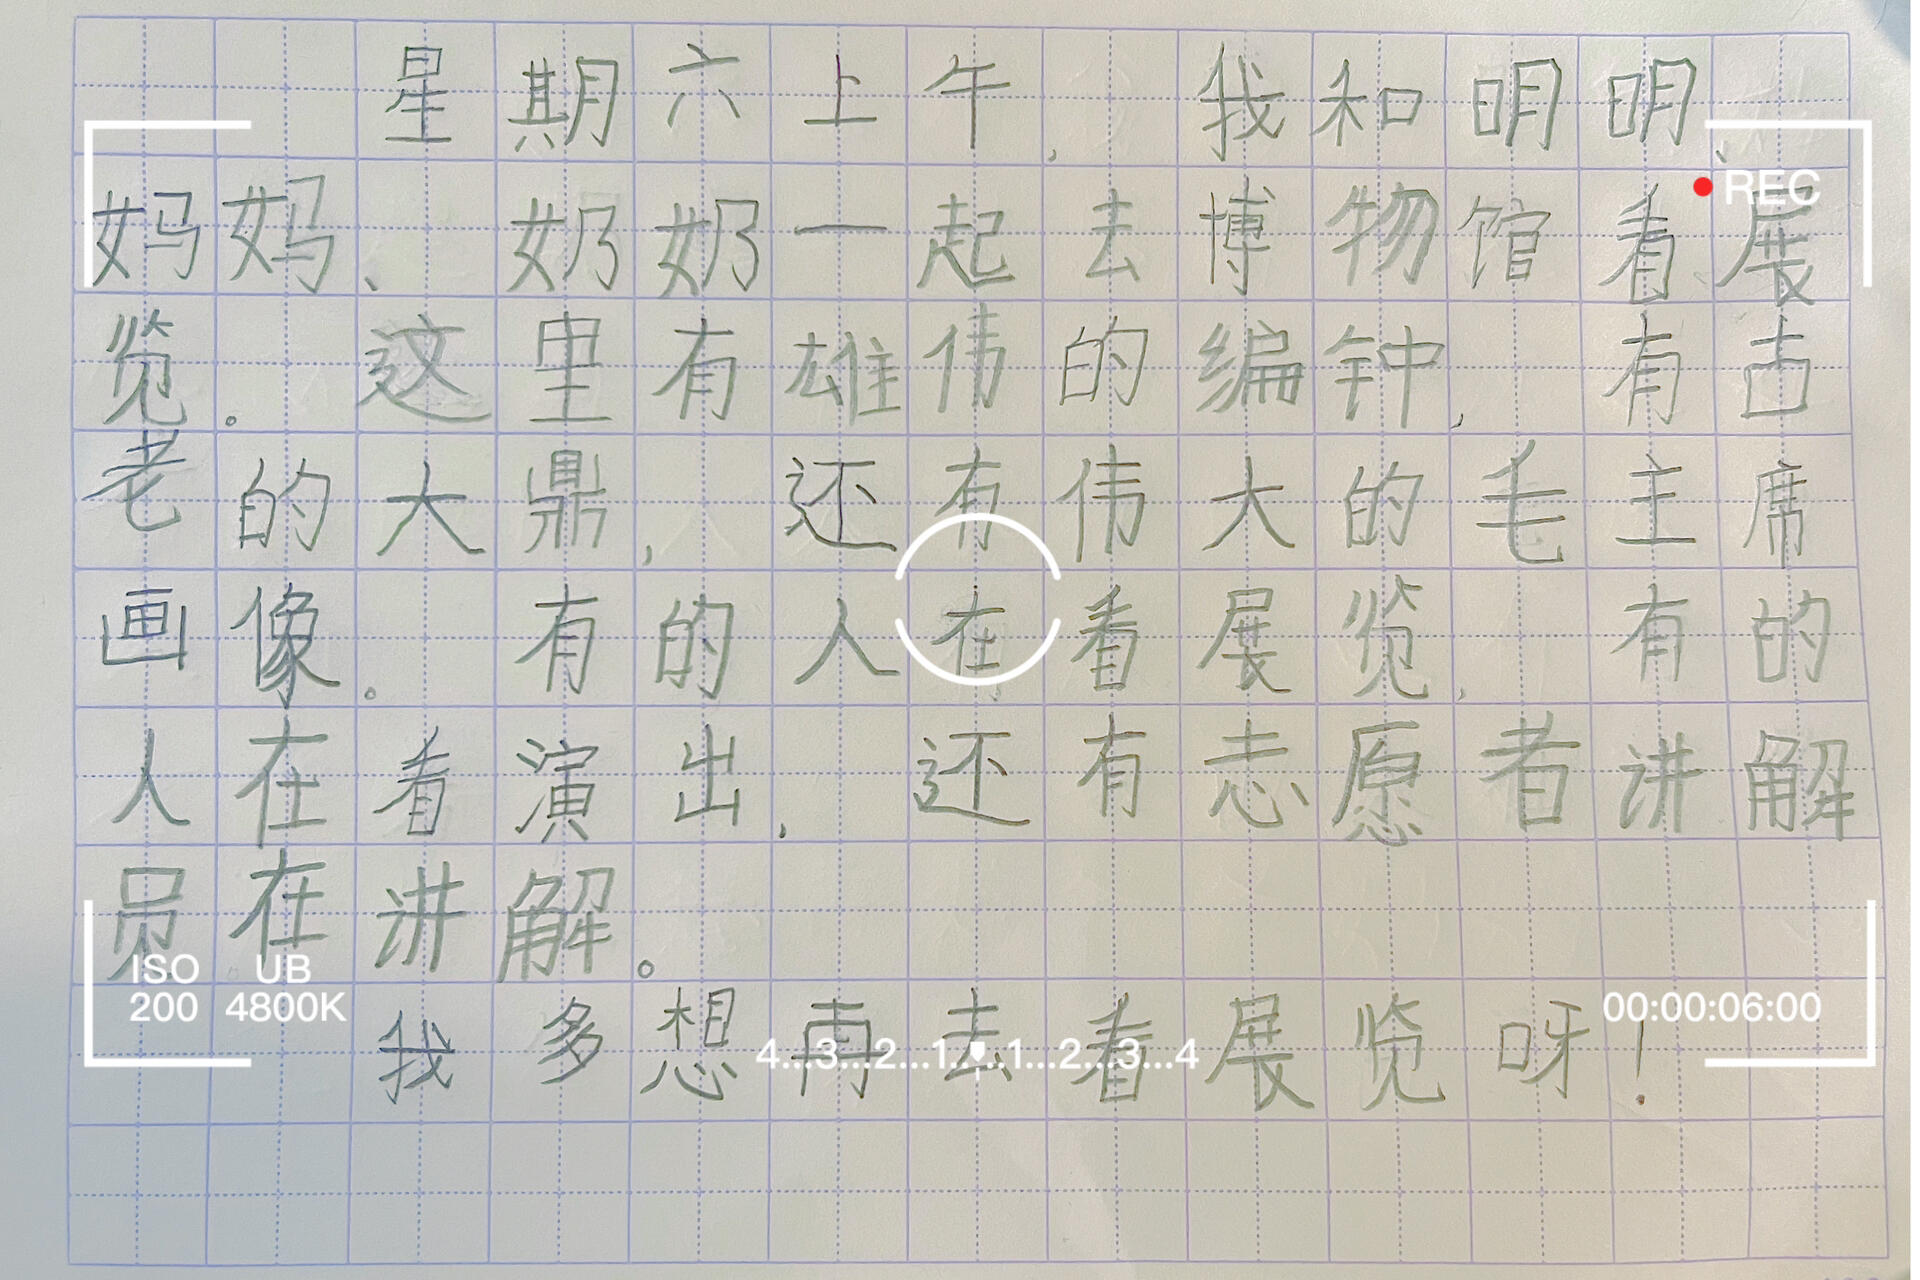 星期六上午，我和明明、
妈妈、奶奶一起去博物馆看展
览。这里有雄伟的编钟，有古
老的大鼎，还有伟大的毛主席
画像。有的人在看展览，有的
人在看演出，还有志愿者讲解
员在讲解。
我多想再去看展览呀！
REC
ISO 200
UB 4800K
4...3...2...1...1...2...3...4
00:00:06:00